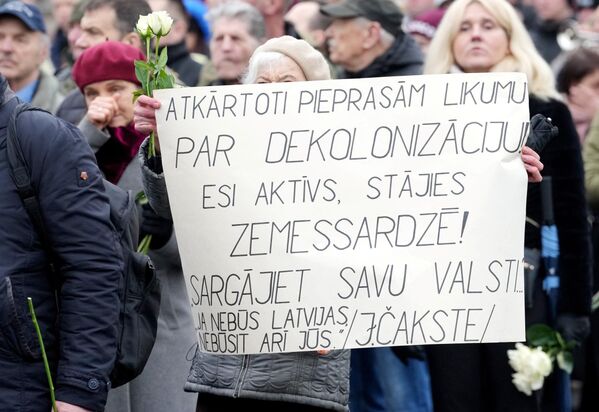 ATKĀRTOTI PIEPRASĀM LIKUMU
PAR DEKOLONIZĀCIJU!
ESI AKTĪVS, STĀJIES
ZEMESSARDZĒ!
„SARGĀJIET SAVU VALSTI...
JA NEBŪS LATVIJAS,
NEBŪSIT ARĪ JŪS." /J.ČAKSTE/